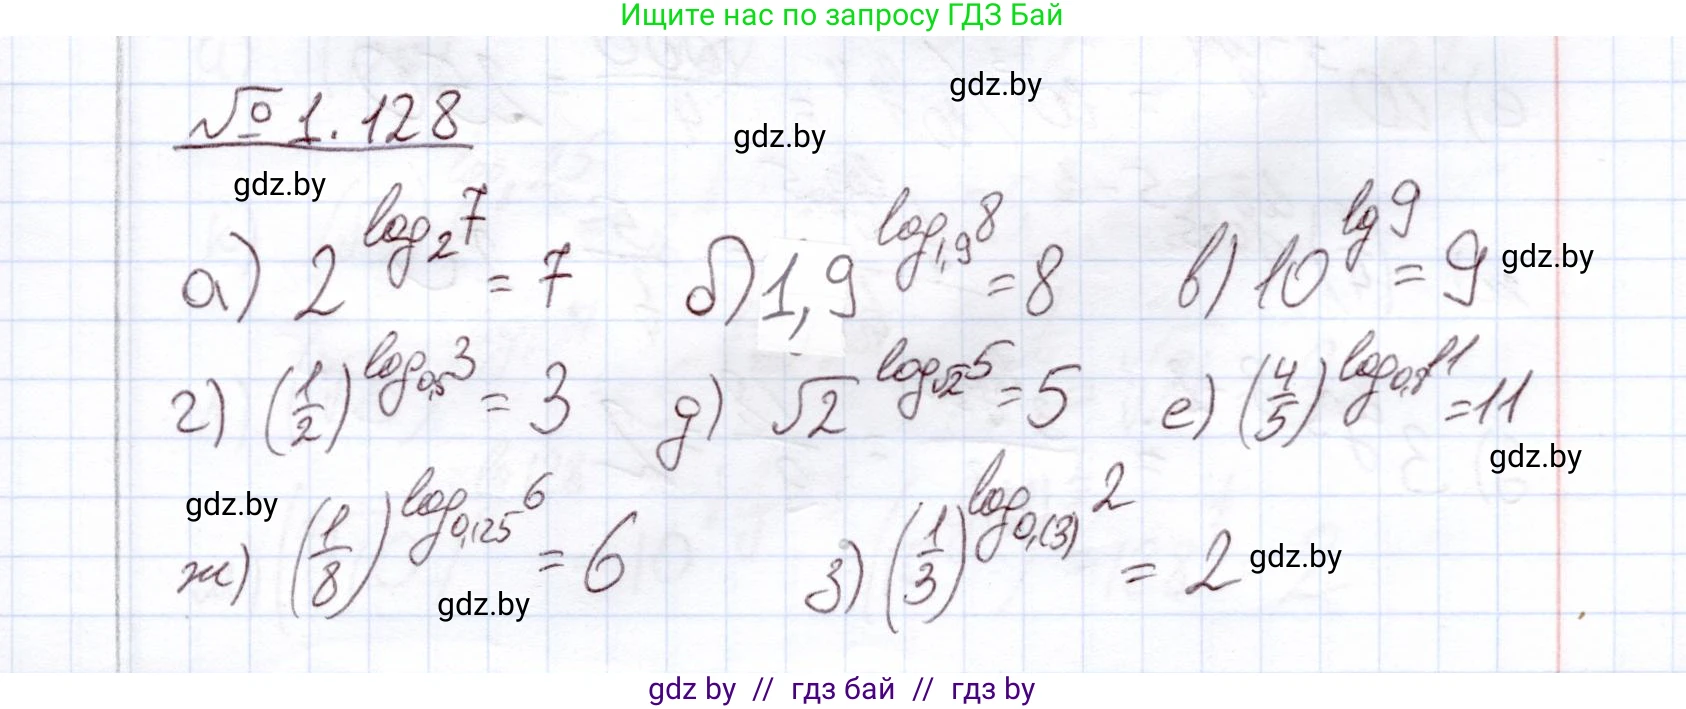 Ищите нас по запросу ГДЗ Бай
gdz.by
№ 1.128
gdz.by
gdz.by
а) 2^{log_2 7} = 7 б) 1,9^{log_{1,9} 8} = 8 в) 10^{lg 9} = 9 gdz.by
г) (1/2)^{log_{0,5} 3} = 3 д) √2^{log_{√2} 5} = 5 е) (4/5)^{log_{0,8} 11} = 11
gdz.by
gdz.by
ж) (1/8)^{log_{0,125} 6} = 6 з) (1/3)^{log_{0,(3)} 2} = 2 gdz.by
gdz.by
gdz by // гдз бай // гдз by